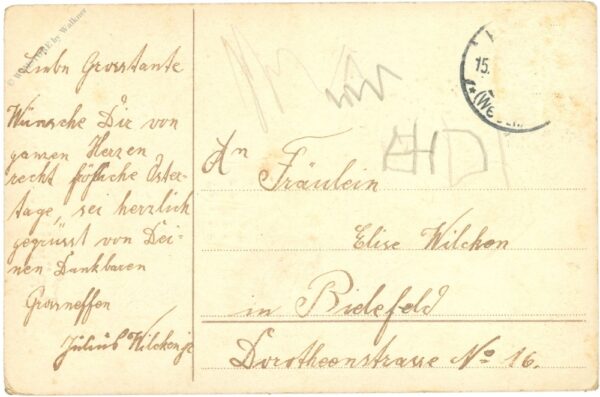 Liebe Grosstante
Wünsche Dir von
ganzen Herzen,
recht fröhliche Oster-
tage, sei herzlich
gegrüsst von Dei-
nen Dankbaren
Grosneffen
Julius Wilcken jr
An
Fräulein
Elise Wilcken
in Bielefeld
Dorotheenstrasse No 16.
15.